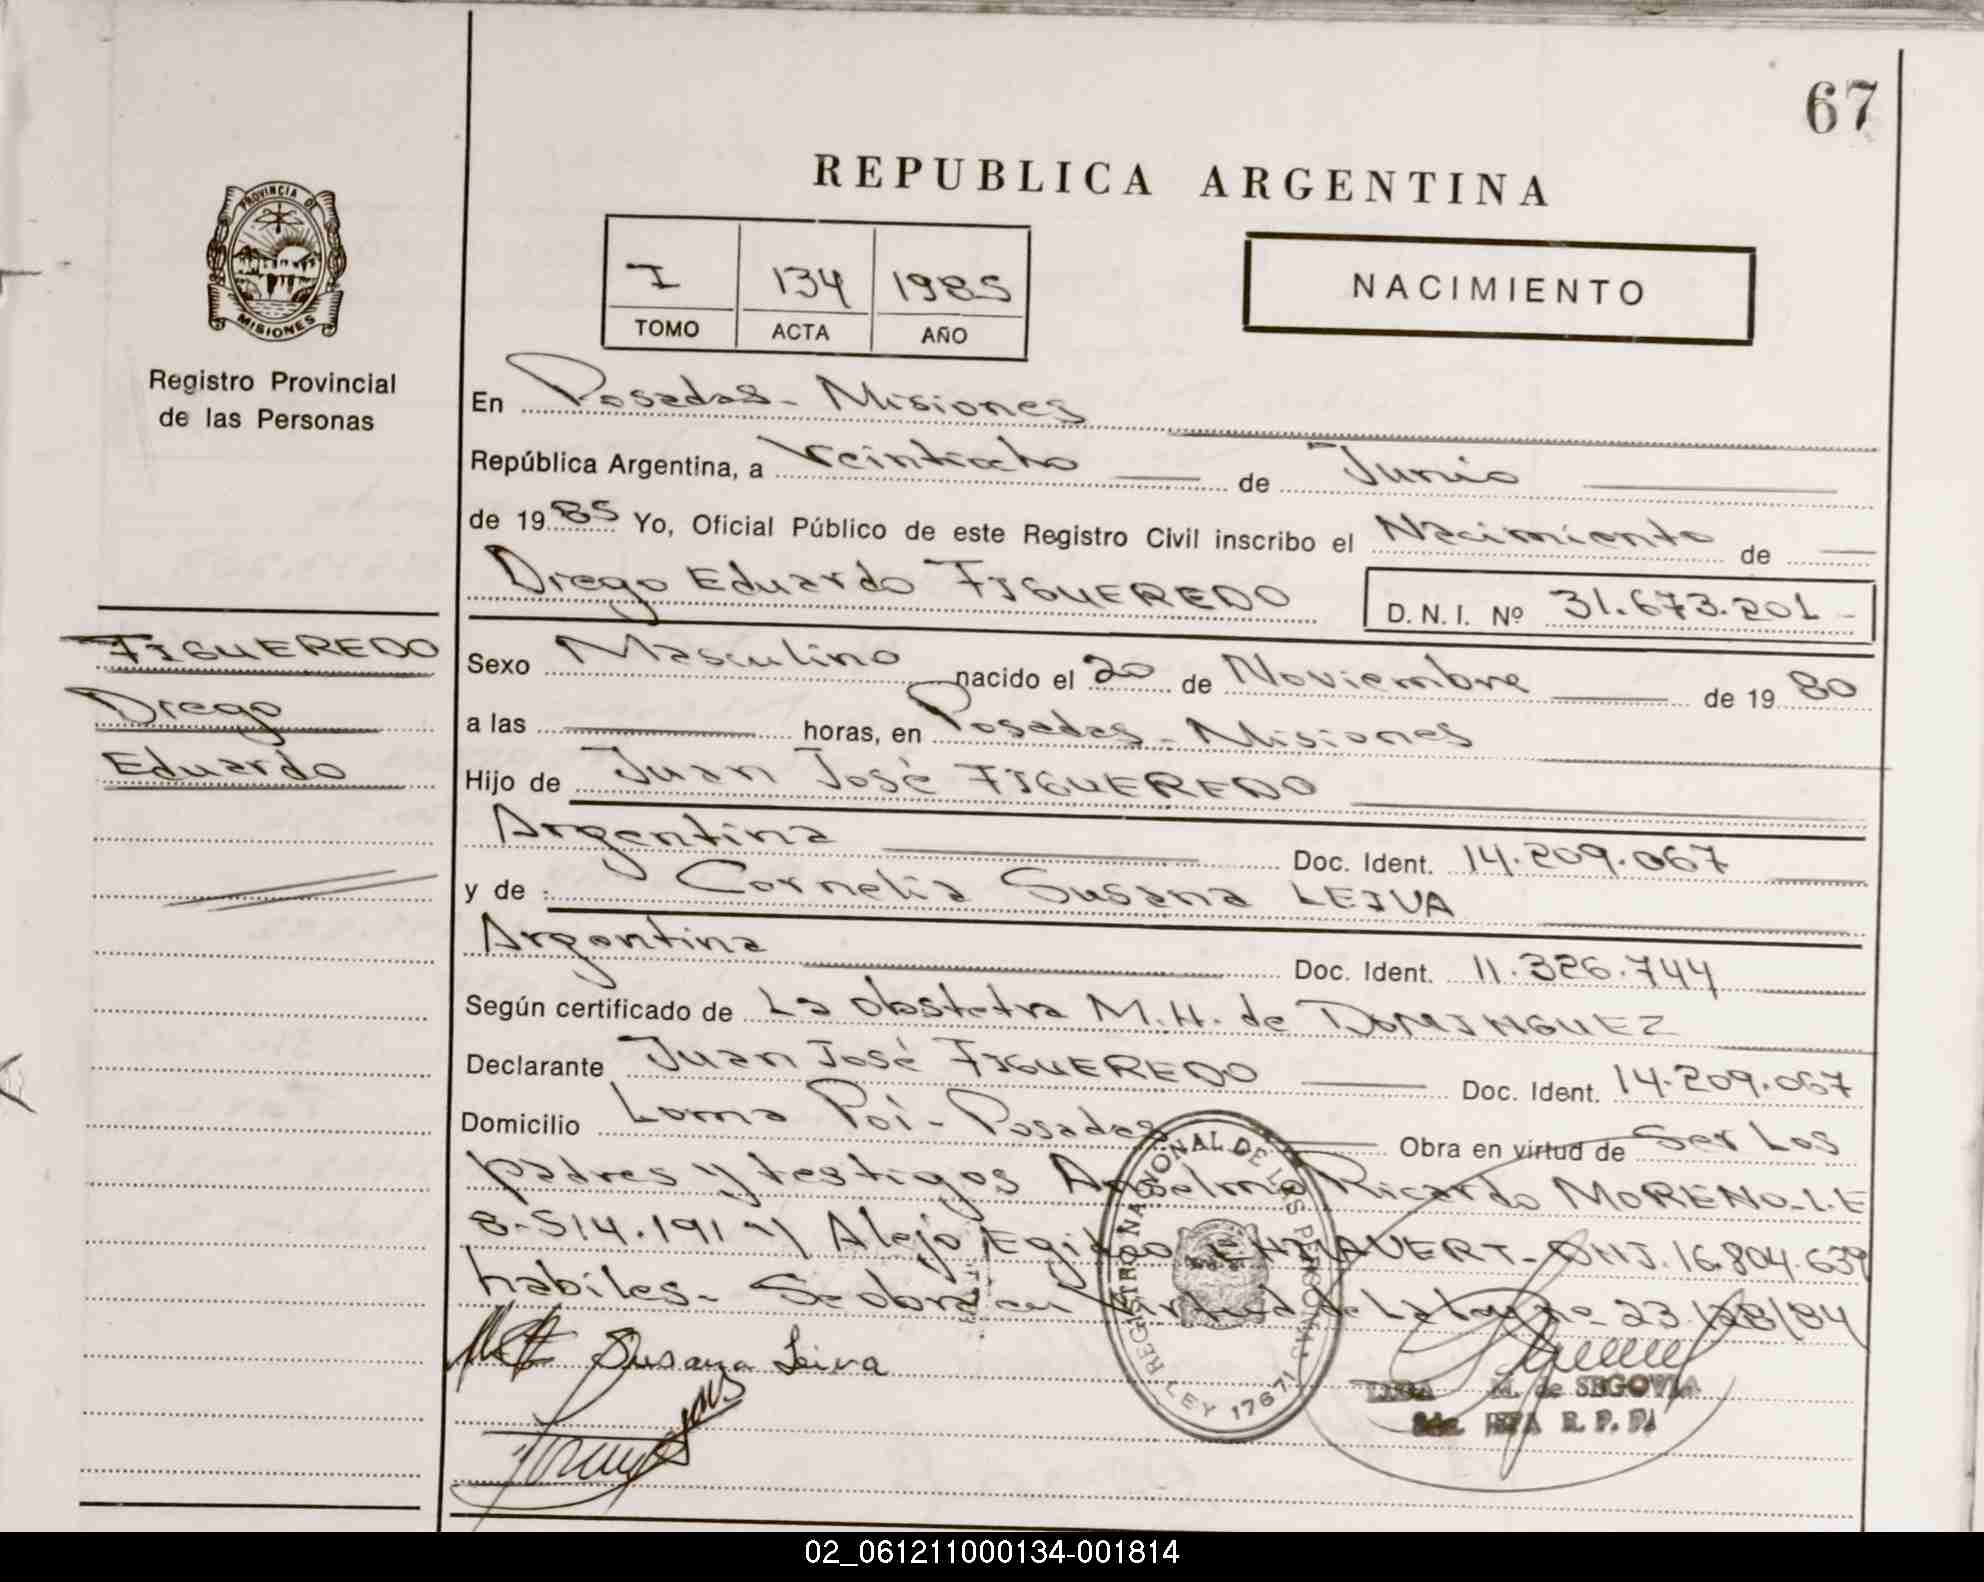 67
REPUBLICA ARGENTINA
PROVINCIA DE
MISIONES
Registro Provincial
de las Personas
I 134 1985
TOMO ACTA AÑO
NACIMIENTO
En Posadas - Misiones
República Argentina, a Veintiocho de Junio
de 1985 Yo, Oficial Público de este Registro Civil inscribo el Nacimiento de
Diego Eduardo FIGUEREDO D. N. I. Nº 31.673.201 -
FIGUEREDO
Diego
Eduardo
Sexo Masculino nacido el 20 de Noviembre de 19 80
a las horas, en Posadas - Misiones
Hijo de Juan José FIGUEREDO
Argentina Doc. Ident. 14.209.067
y de : Cornelia Susana LEIVA
Argentina Doc. Ident. 11.326.744
Según certificado de La obstetra M.H. de DOMINGUEZ
Declarante Juan José FIGUEREDO Doc. Ident. 14.209.067
Domicilio Loma Poi - Posadas Obra en virtud de Ser Los
padres y testigos Anselmo Ricardo MORENO - L.E
8.514.191 y Alejo Egidio DNI. 16.804.639
habiles - Se obra en virtud de La Ley nº 23.128/84
Susana Leiva
REGISTRO NACIONAL DE LAS PERSONAS
LEY 17671
M. de SEGOVIA
R. P. P.
02_061211000134-001814